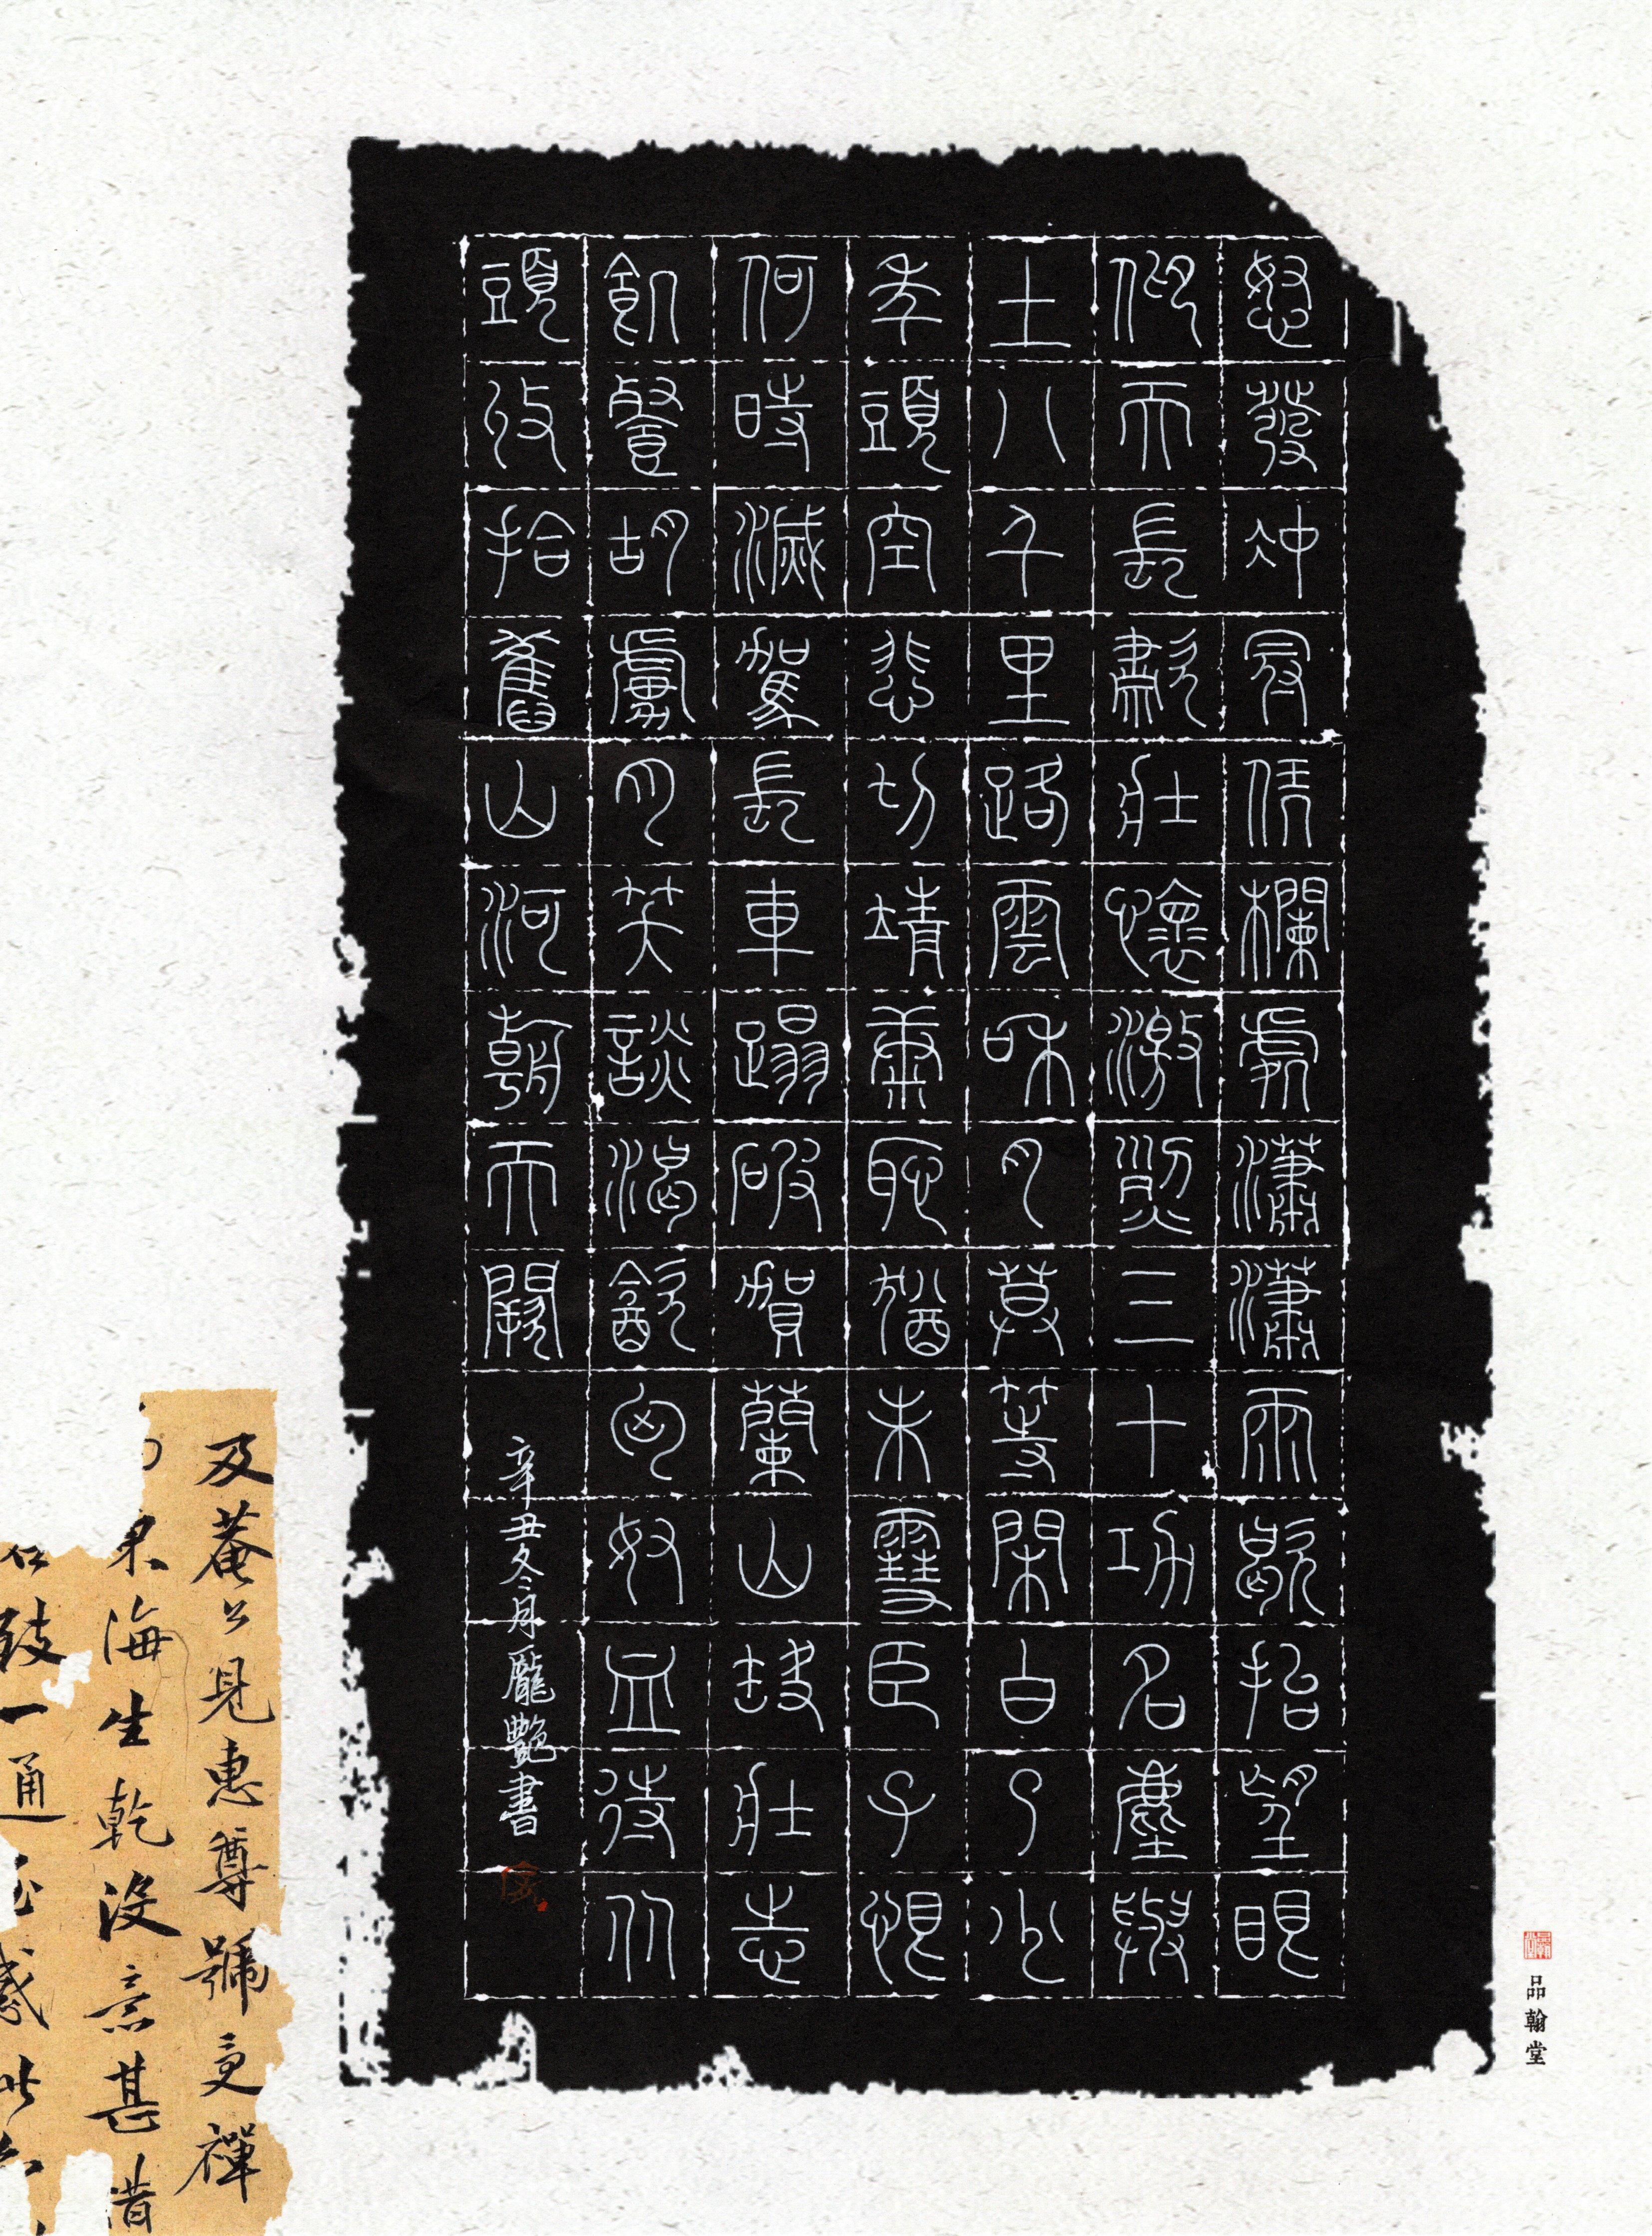 怒發沖冠凭欄處瀟瀟雨歇抬望眼
仰天長嘯壯懷激烈三十功名塵與
土八千里路雲和月莫等閑白了少
年頭空悲切靖康恥猶未雪臣子恨
何時滅駕長車蹋破賀蘭山缺壯志
飢餐胡虜肉笑談渴飲匈奴血待從
頭收拾舊山河朝天闕
辛丑冬月龐艷書
品翰堂
及菴公見惠尊號更禪
海生乾沒意甚昔
一通